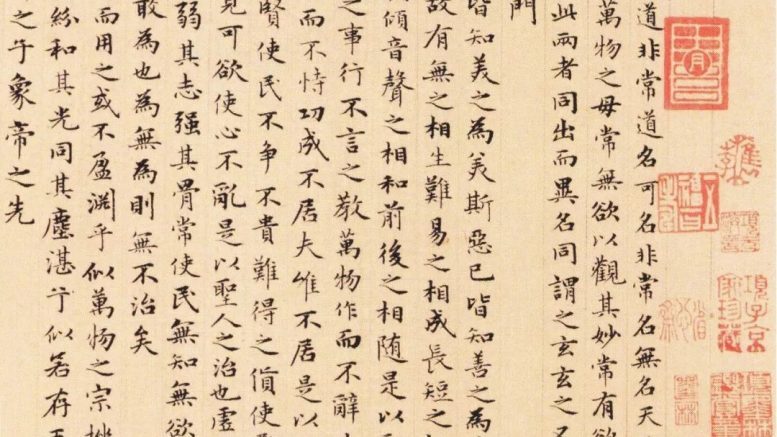 道非常道名可名非常名無名天
萬物之母常無欲以觀其妙常有欲
此兩者同出而異名同謂之玄玄之又
門
皆知美之為美斯惡已皆知善之為
故有無之相生難易之相成長短之
傾音聲之相和前後之相随是以
之事行不言之教萬物作而不辭
而不恃功成不居夫惟不居是以
賢使民不争不貴難得之貨使
見可欲使心不亂是以聖人之治也虛
弱其志强其骨常使民無知無欲
敢為也為無為則無不治矣
而用之或不盈淵乎似萬物之宗挫
紛和其光同其塵湛兮似若存
之子象帝之先
項子京家珍藏